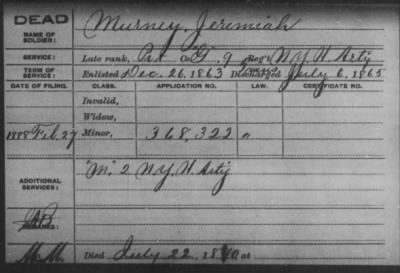 DEAD
NAME OF SOLDIER: Murney, Jeremiah
SERVICE: Late rank, Pvt Co G, 9 Reg't N Y H Arty
TERM OF SERVICE: Enlisted Dec. 26, 1863 Discharged July 6, 1865
DATE OF FILING. CLASS. APPLICATION NO. LAW. CERTIFICATE NO.
Invalid,
Widow,
1888 Feb. 27 Minor, 368,322
ADDITIONAL SERVICES: "M," 2 N Y. H Arty
REMARKS:
Died July 22, at